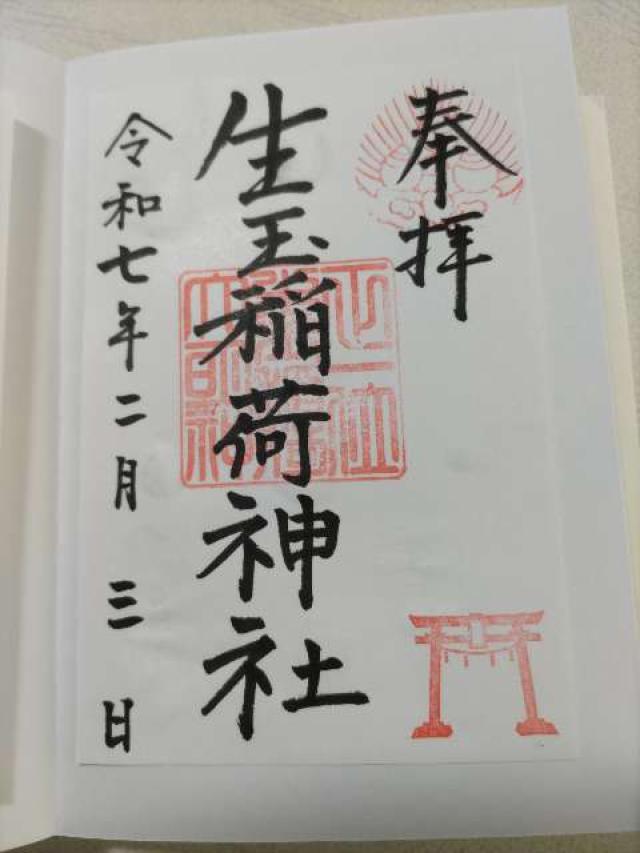 奉拝
生玉稲荷神社
令和七年二月三日